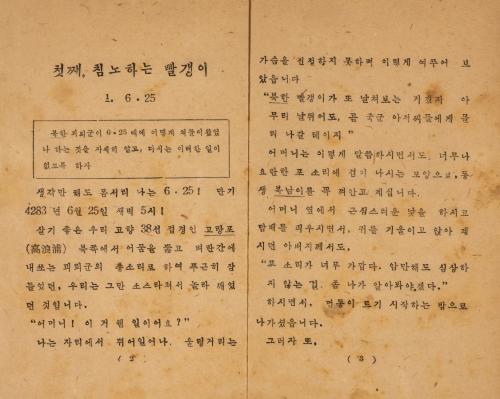 첫째, 침노하는 빨갱이
1. 6.25
북한 괴뢰군이 6·25 때에 어떻게 쳐들어왔었
나 하는 것을 자세히 알고, 다시는 이러한 일이
없도록 하자
생각만 해도 몸서리 나는 6.25! 단기
4283년 6월 25일 새벽 5시!
살기 좋은 우리 고향 38선 접경인 고랑포
(高浪浦) 북쪽에서 어둠을 뚫고 벼란간에
내쏘는 괴뢰군의 총소리로 하여 푸근히 잠
들었던, 우리는 그만 소스라쳐서 놀라 깨었
던 것입니다.
"어머니! 이 거 웬 일이어요?"
나는 자리에서 뛰어일어나, 울렁거리는
(2)
가슴을 진정하지 못하며 이렇게 여쭈어 보
았읍니다
"북한 빨갱이가 또 날쳐보는 거겠지 아
무리 날뛰어도, 곧 국군 아저씨들에게 몰
려 나갈 테이지."
어머니는 이렇게 말씀하시면서도, 너무나
요란한 포 소리에 겁이 나시는 모양으로, 동
생 복남이를 꼭 껴안고 계십니다.
어머니 옆에서 근심스러운 낯을 하시고
담배를 피우시면서, 귀를 기울이고 앉아 계
시던 아버지께서도,
"포 소리가 너무 가깝다. 암만해도 심상하
지 않는 걸. 좀 나가 알아봐야겠다."
하시면서, 먼동이 트기 시작하는 밖으로
나가셨읍니다.
그러자 또,
(3)